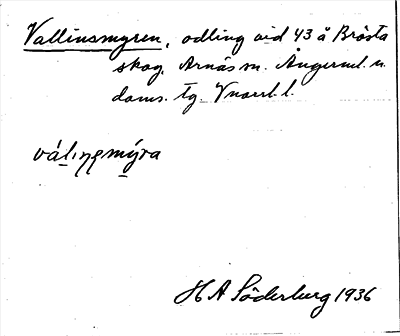 Vallinsmyren, odling vid 43 å Brösta
skog, Arnäs sn. Ångerml. n.
doms. tg. Vnorrl. l.
vál
H A Söderburg 1936